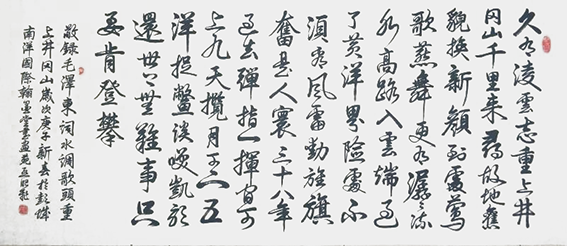 久有凌雲志重上井
冈山千里来尋故地舊
貌换新颜到處鶯
歌燕舞更有潺潺流
水高路入雲端过
了黄洋界險處不
須看風雷動旌旗
奮是人寰三十八年
过去彈指一揮间可
上九天攬月可下五
洋捉鱉談笑凱歌
還世上無難事只
要肯登攀
敬錄毛澤東词水调歌頭重
上井冈山歲次庚子新春於彭城
南洋國際翰墨堂畫苑